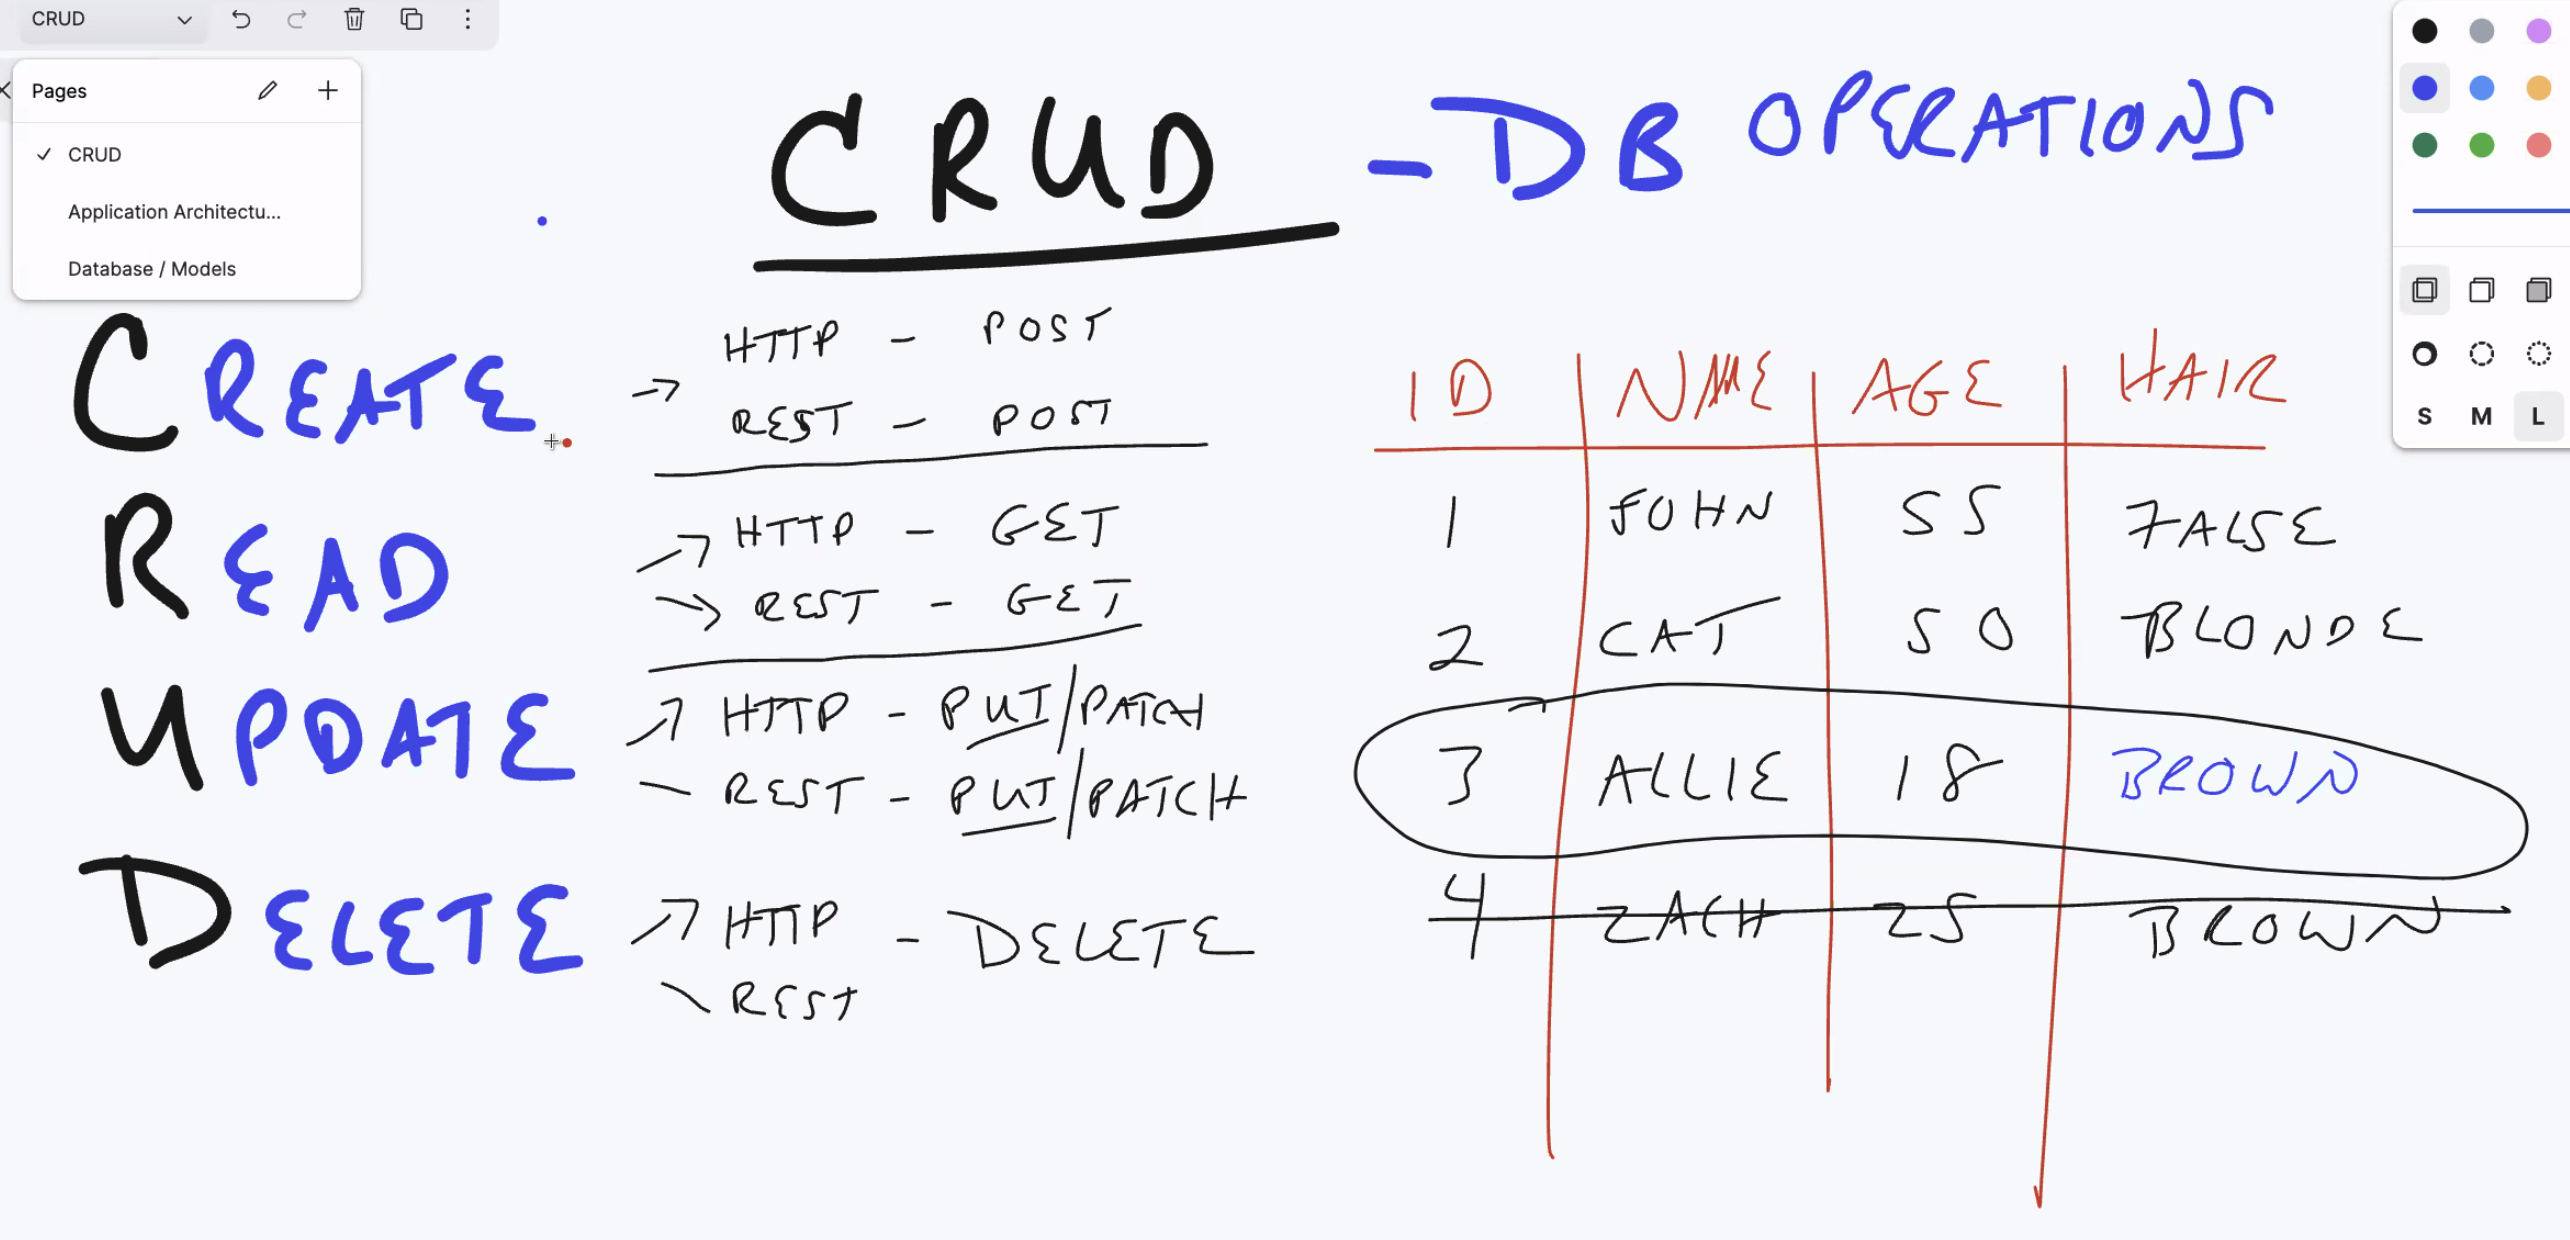 CRUD
Pages
CRUD
Application Architectu...
Database / Models
CRUD - DB OPERATIONS
CREATE
HTTP - POST
REST - POST
READ
HTTP - GET
REST - GET
UPDATE
HTTP - PUT/PATCH
REST - PUT/PATCH
DELETE
HTTP - DELETE
REST
ID NAME AGE HAIR
1 JOHN 55 FALSE
2 CAT 50 BLONDE
3 ALLIE 18 BROWN
4 ZACH 25 BROWN
S M L